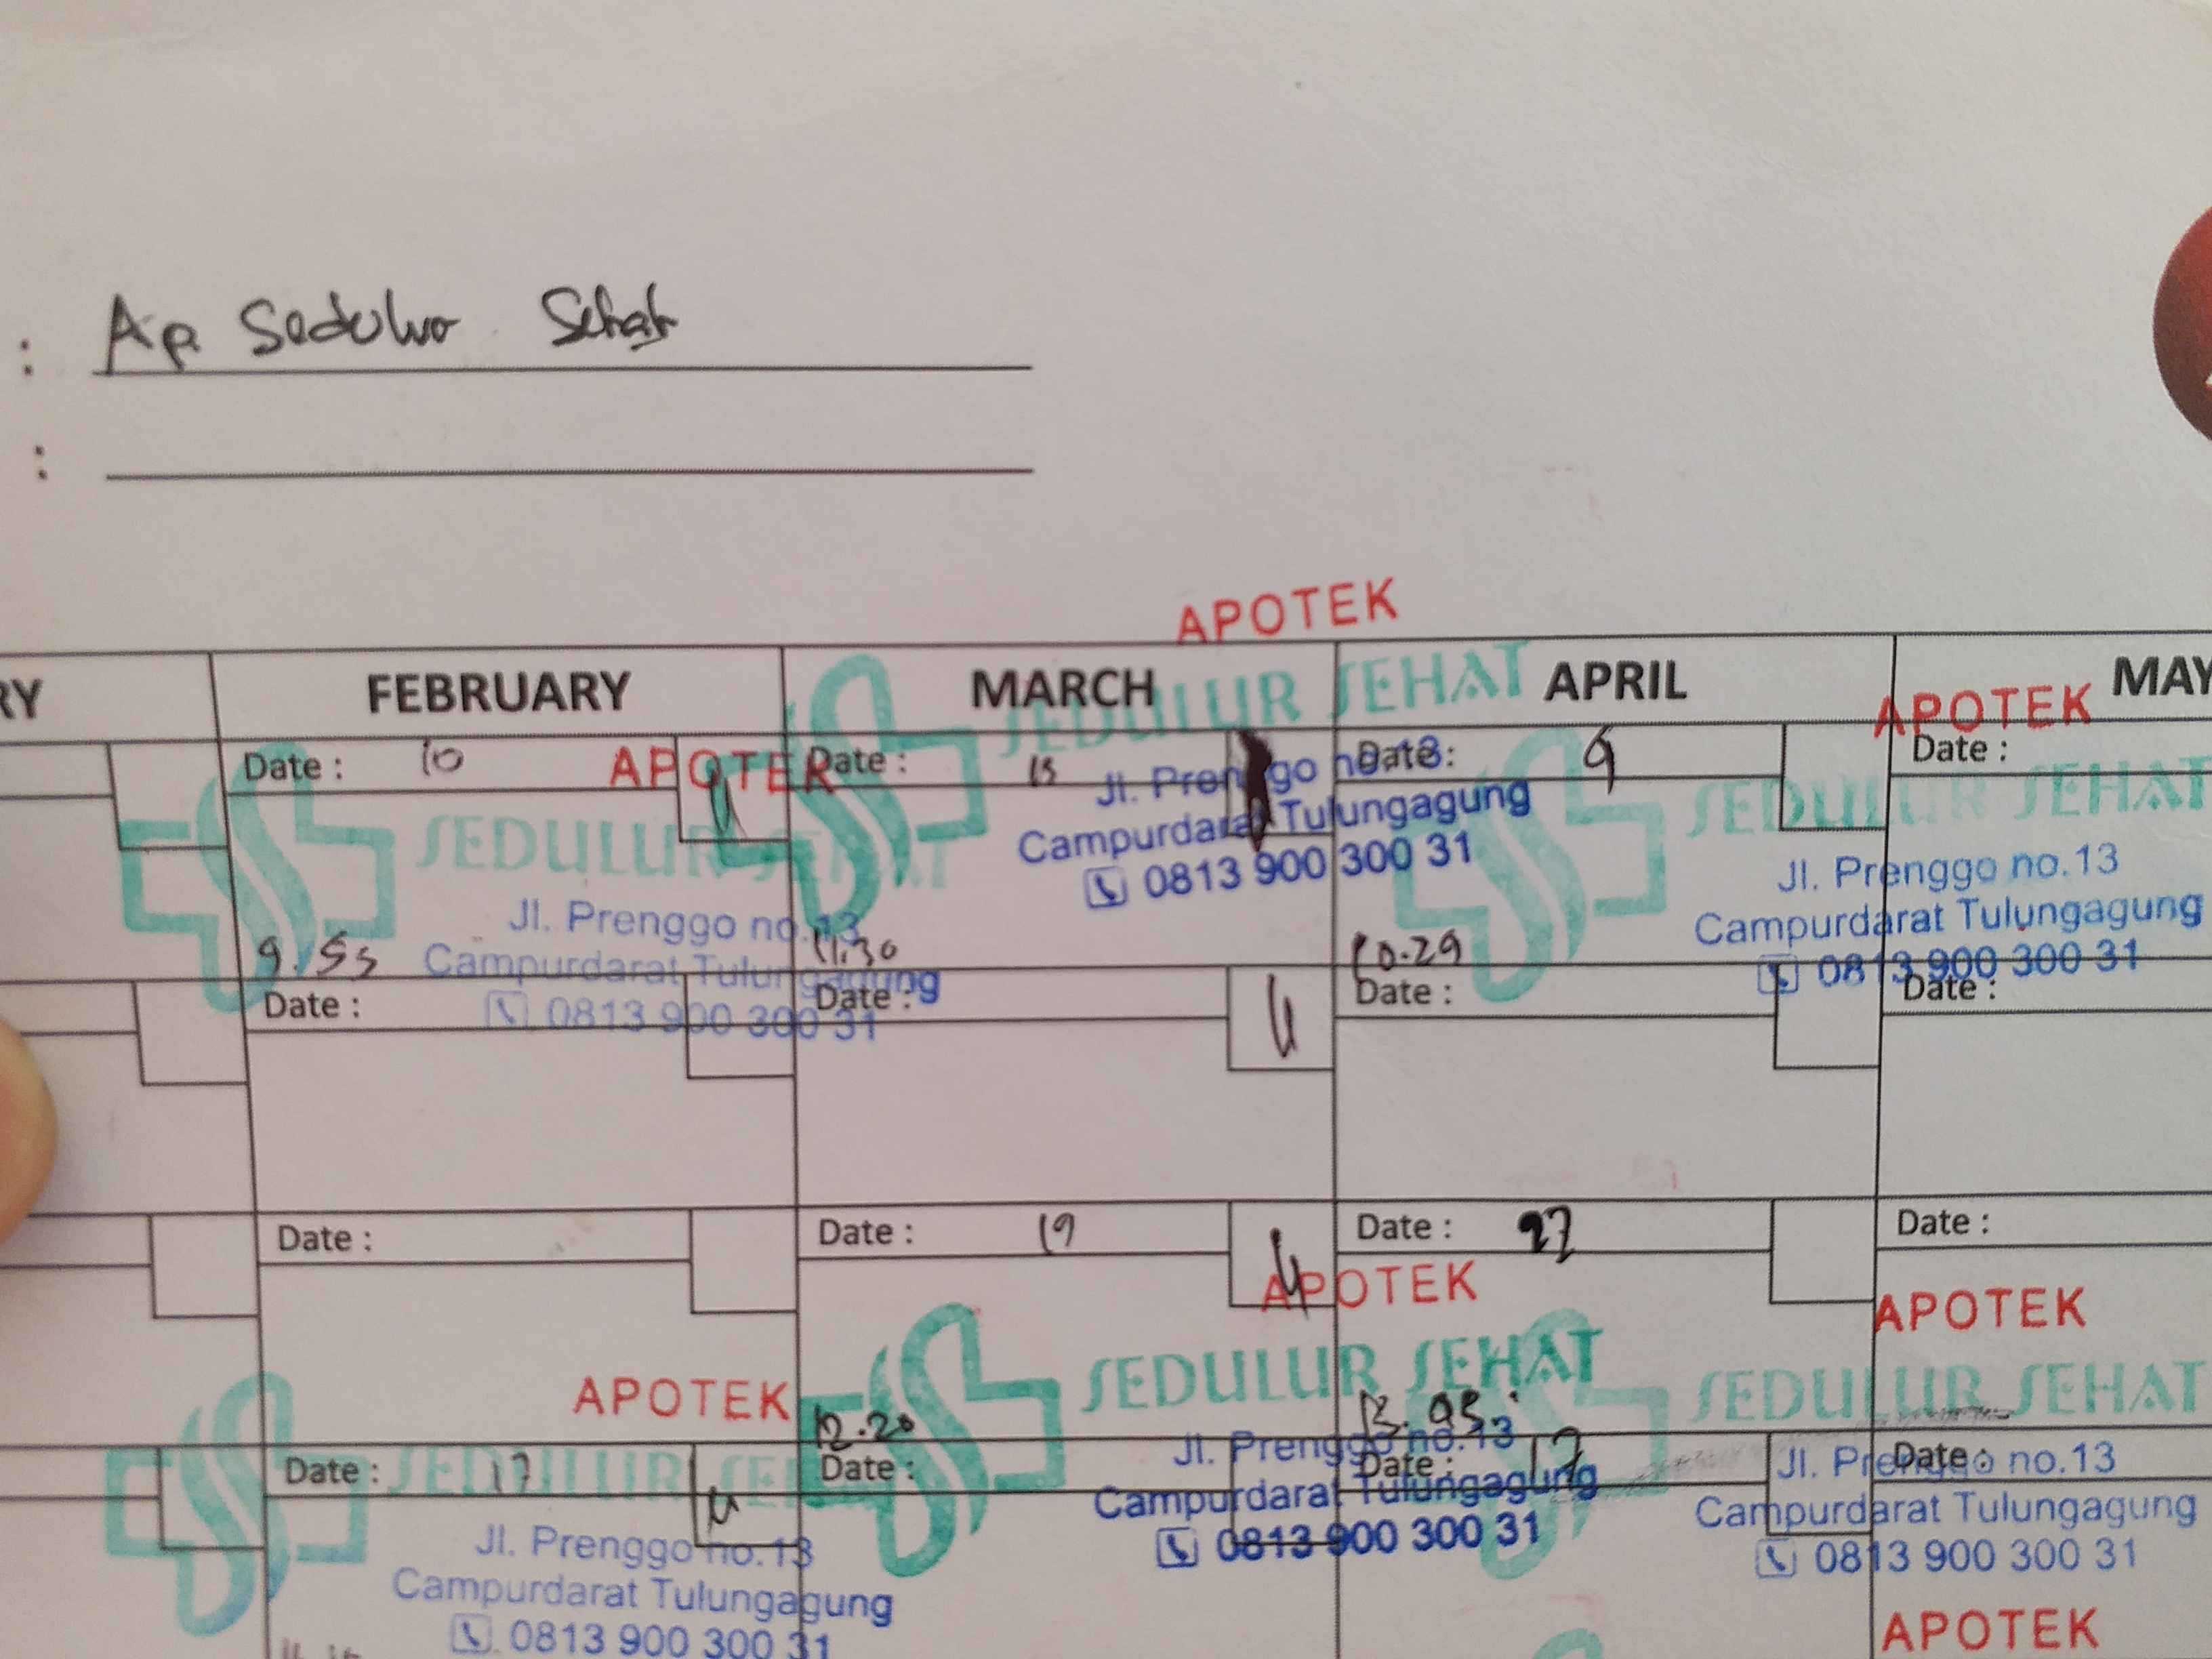 : Ap. Sedulur Sehat
:
APOTEK
RY FEBRUARY MARCH APRIL MAY
SEDULUR SEHAT
APOTEK
Date : 10 Date : Date : 9 Date :
APOTEK
Jl. Prenggo no.13
Campurdarat Tulungagung
0813 900 300 31
SEDULUR SEHAT
SEDULUR SEHAT
Jl. Prenggo no.13
Campurdarat Tulungagung
0813 900 300 31
Jl. Prenggo no.13
Campurdarat Tulungagung
0813 900 300 31
9.55 11.30 10.29
Date : Date : Date : Date :
Date : Date : 19 Date : 27 Date :
APOTEK
APOTEK
SEDULUR SEHAT
SEDULUR SEHAT
APOTEK
12.20
Date : 17 Date : Date : 17 Date :
Jl. Prenggo no.13
Campurdarat Tulungagung
0813 900 300 31
Jl. Prenggo no.13
Campurdarat Tulungagung
0813 900 300 31
Jl. Prenggo no.13
Campurdarat Tulungagung
0813 900 300 31
APOTEK